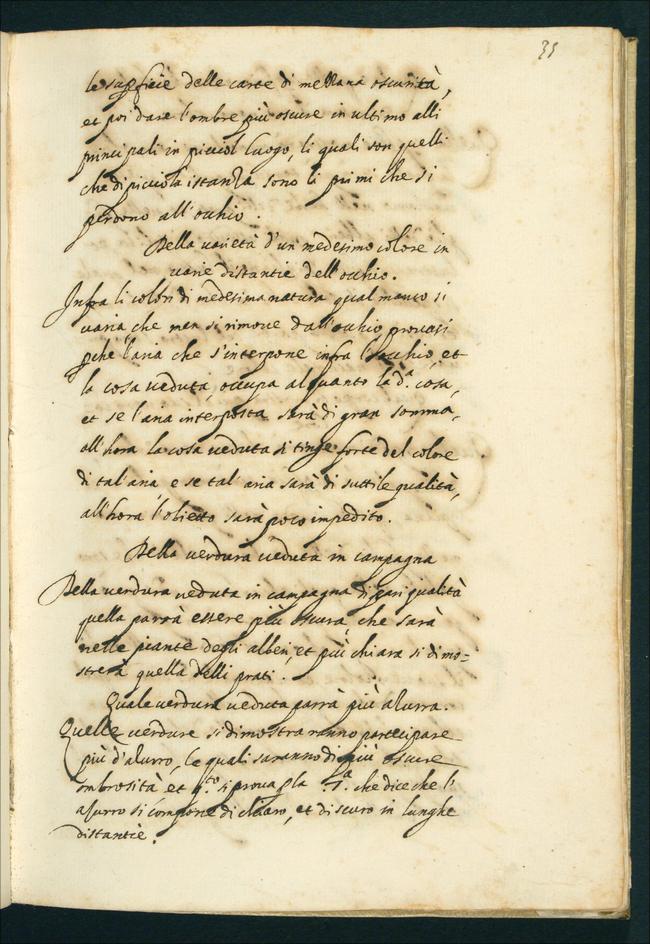 35
le supficie delle carte di mezzana oscurità,
et poi dare l'ombre più oscure in ultimo alli
principali in picciol luogo, li quali son quelli
che di picciola istanza sono li primi che si
perdono all'occhio.
Della varietà d'un medesimo colore in
varie distantie dell'occhio.
Infra li colori di medesima natura qual manco si
varia, che men si rimove dall'occhio, provasi
pchè l'aria che s'interpone infra l'occhio, et
la cosa veduta, occupa alquanto la d.ª cosa,
et se l'aria interposta sarà di gran somma,
all'hora la cosa veduta si tinge forte del colore
di tal aria e se tal aria sarà di suttile qualità,
all'hora l'obietto sarà poco impedito.
Della verdura veduta in campagna
Della verdura veduta in campagna di pari qualità
quella parrà essere più oscura, che sarà
nelle piante degli alberi, et più chiara si dimo=
strerà quella delli prati.
Quale verdura veduta parrà più azurra.
Quelle verdure si dimostraranno partecipare
più d'azurro, le quali saranno di più oscure
ombrosità et q.to si prova p la che dice che l'
azurro si compone di chiaro, et di scuro in lunghe
distantie.